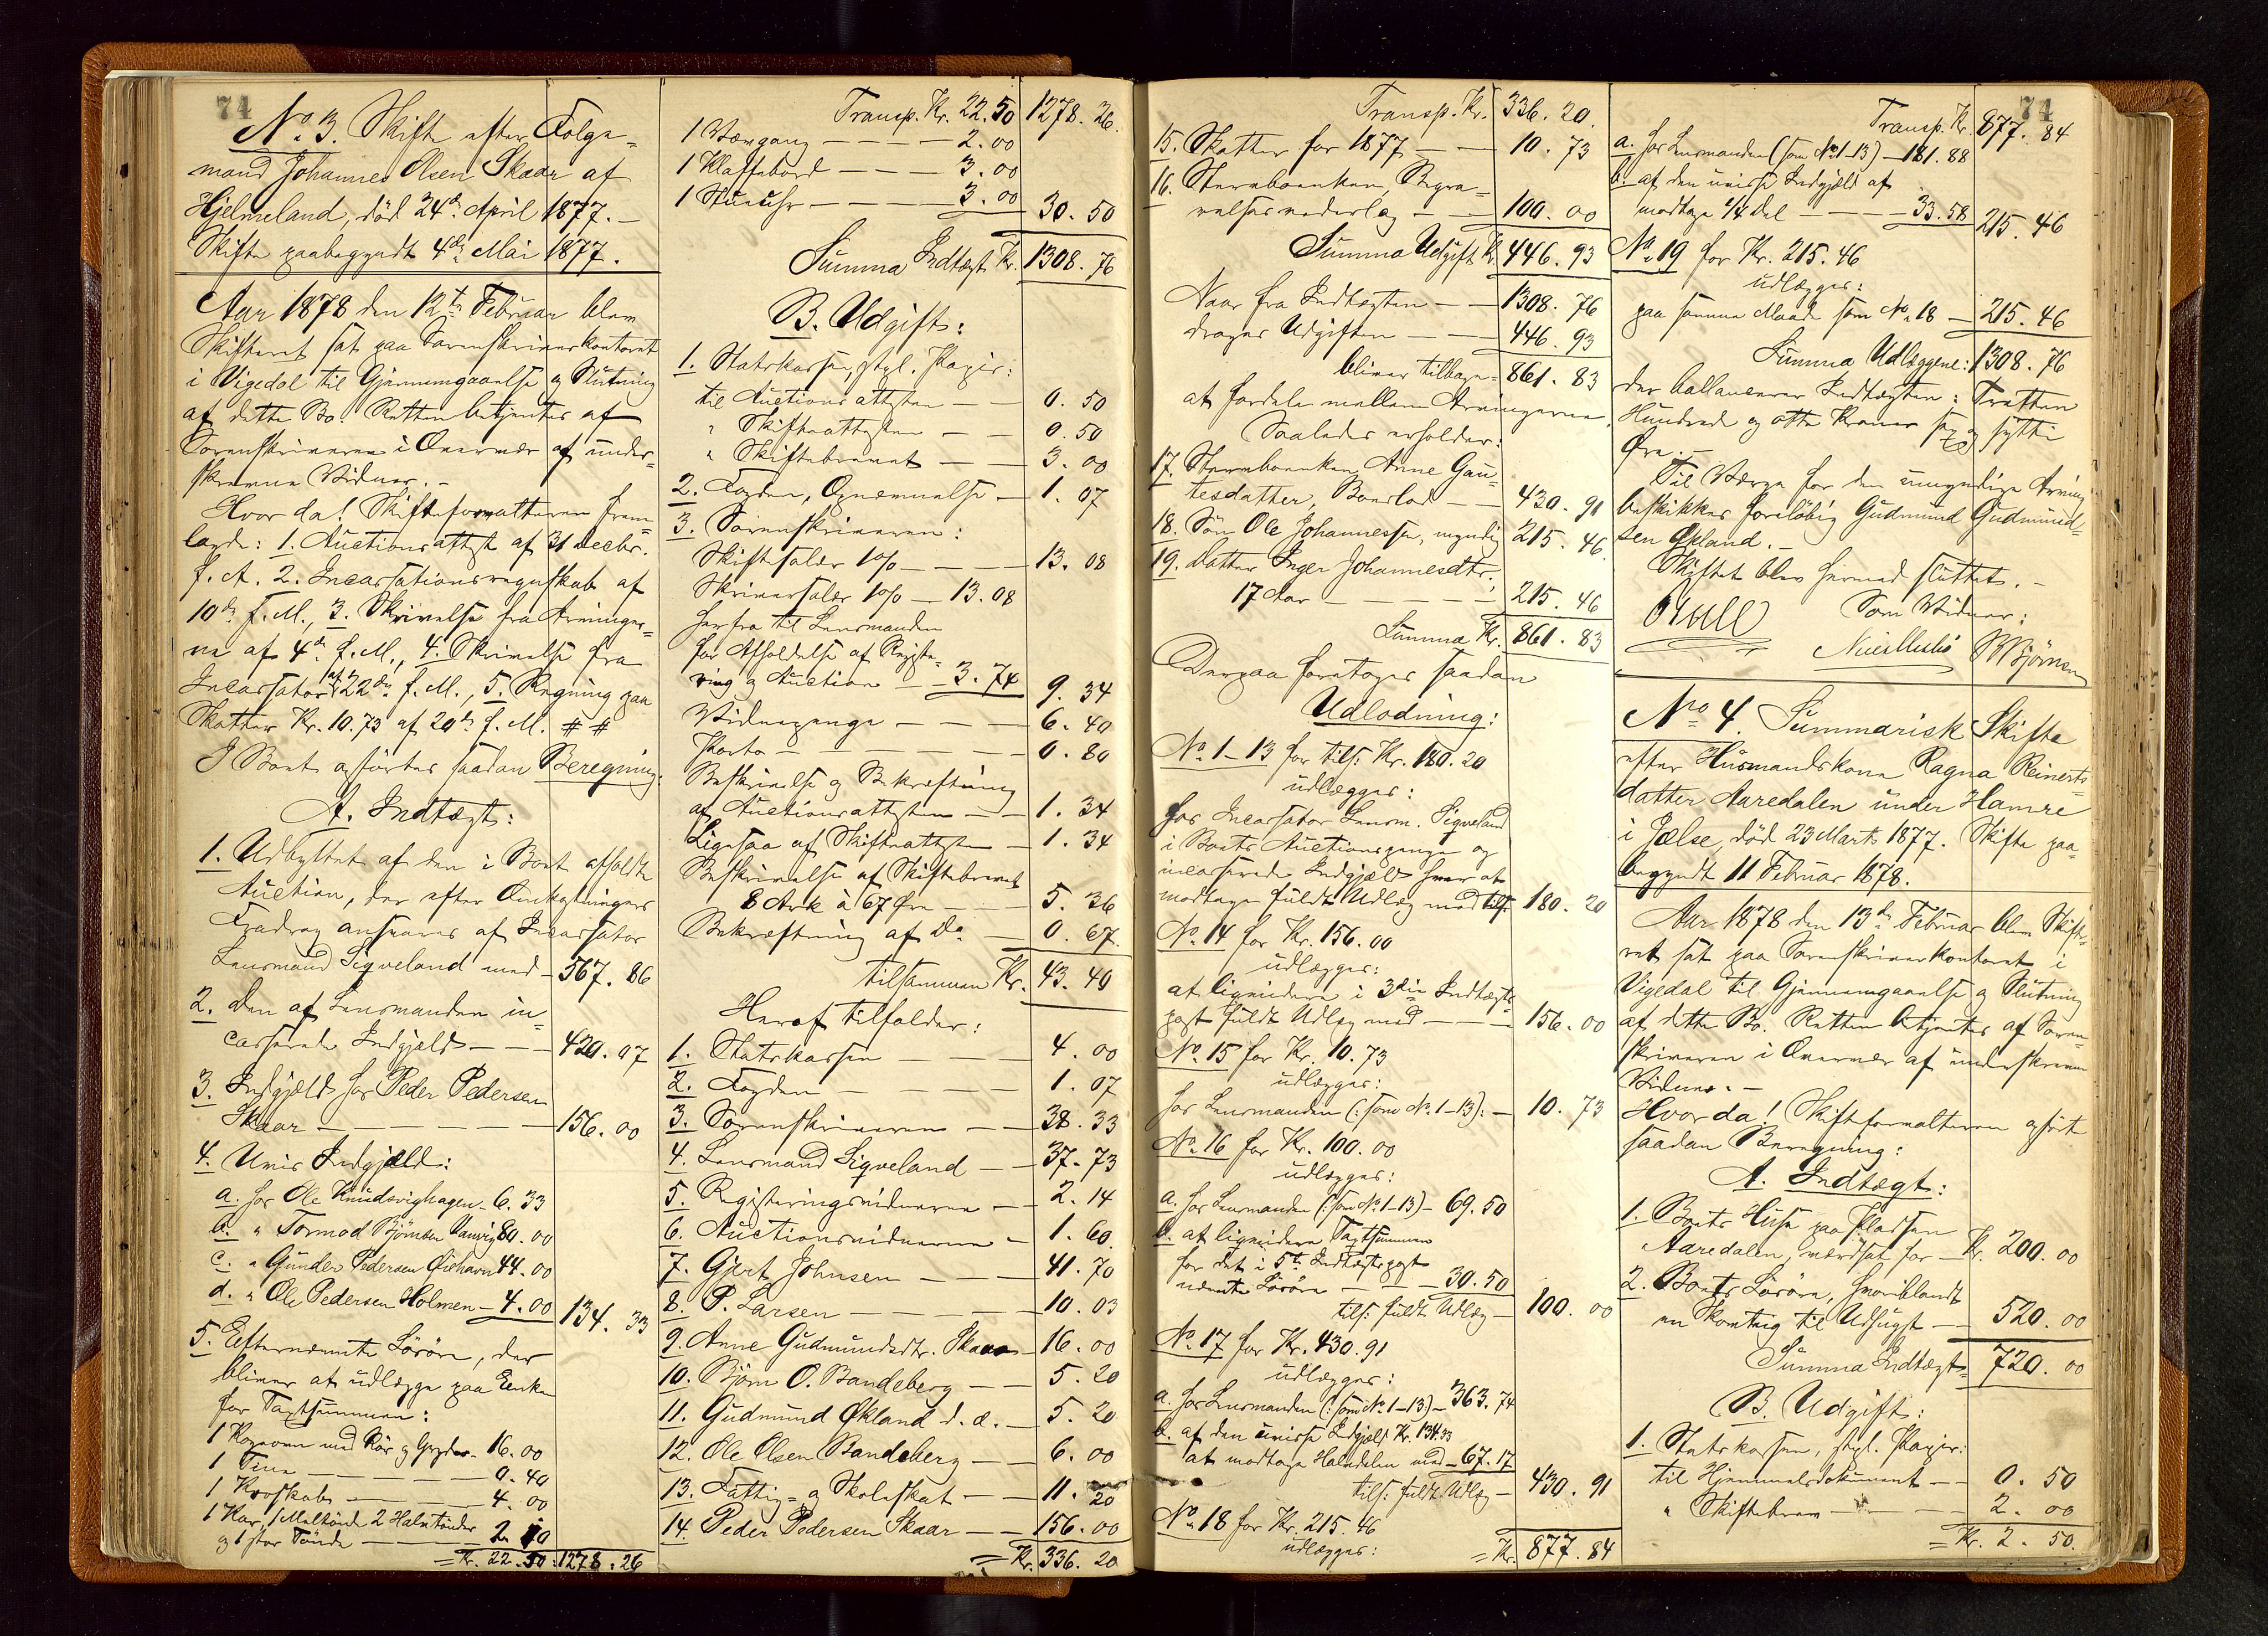 74
No 3. Skifte efter Følge-
mand Johannes Olsen Skaar af
Hjelmeland, död 24de April 1877. -
Skifte paabegyndt 4de Mai 1877.
Aar 1878 den 12te Februar blev
Skifteret sat paa Sorenskriverkontoret
i Vigedal til Gjennemgaaelse og Slutning
af dette Bo. Retten betjentes af
Sorenskriveren i Overvær af under-
skrevne Vidner. -
Hvor da! Skifteforvalteren frem-
lagde: 1. Auctionsattest af 31 Decbr.
f. A. 2. Incassationsregnskab af
10de f. M., 3. Skrivelse fra Arvinger-
ne af 4de f. M., 4. Skrivelse fra
Incassator af 22de f. M., 5. Regning paa
Skatter Kr. 10.73 af 20de f. M. # #
I Boet opførtes saadan Beregning:
A. Indtægt:
1. Udbyttet af den i Boet afholdte
Auction, der efter Omkostningers
Fradrag ansvares af Incassator
Lensmand Sigveland med - 567. 86
2. Den af Lensmanden in-
casserede Indgjæld - - - 420. 07
3. Indgjæld hos Peder Pedersen
Skaar - - - - - 156. 00
4. Uvis Indgjæld:
a. hos Ole Knudsvighagen - 6. 33
b. " Tormod Bjömsen 80. 00
c. " Gunder Pedersen Öiehavn 44. 00
d. " Ole Pedersen Holmen - 4. 00 134. 33
5. Efternævnte Lösöre, der
bliver at udlægge paa Enken
for Taxtsummen:
1 Kogeovn med Rör og Gryder - 16. 00
1 Tine - - - - 0. 40
1 Kroskab - - - - 4. 00
1 Kar, 1 Meltönde 2 Halvtönder
og 1 stor Tönde - - - 2. 10
= Kr. 22. 50 : 1278. 26
Transp. Kr. 22. 50 1278. 26.
1 Vævgang - - - - 2. 00
1 Klaffebord - - - 3. 00
1 Stueuhr - - - - 3. 00 30. 50
Summa Indtægt Kr. 1308. 76
B. Udgift:
1. Statskassen, stpl. Papir:
til Auctionsattesten - - 0. 50
" Skifteattesten - - 0. 50
" Skiftebrevet - - 3. 00
2. Fogden, Opnævnelse - 1. 07
3. Sorenskriveren:
Skiftesalær 1% - - - 13. 08
Skriversalær 1% - 13. 08
herfra til Lensmanden
for Afholdelse af Registe-
ring og Auction - - 3. 74 9. 34
Vidnepenge - - - - 6. 40
Porto - - - - - 0. 80
Beskrivelse og Bekræftning
af Auctionsattesten - - 1. 34
Ligesaa af Skifteattesten - 1. 34
Beskrivelse af Skiftebrevet
8 Ark à 67 Øre - - 5. 36
Bekræftning af Do - 0. 67.
tilsammen Kr. 43. 40
Heraf tilfalder:
1. Statskassen - - - 4. 00
2. Fogden - - - 1. 07
3. Sorenskriveren - - 38. 33
4. Lensmand Sigveland - - 37. 73
5. Registeringsvidnerne - - 2. 14
6. Auctionsvidnerne - 1. 60
7. Gjert Johnsen - - - 41. 70
8. P. Larsen - - - - 10. 03
9. Anne Gudmundsdtr. Skaar - 16. 00
10. Björn O. Bandeberg - - 5. 20
11. Gudmund Økland d. æ. - 5. 20
12. Ole Olsen Bandeberg - - 6. 00
13. Fattig- og Skoleskat - - 11. 20
14. Peder Pedersen Skaar - - 156. 00
= Kr. 336. 20
74
Transp. Kr. 336. 20.
15. Skatter for 1877 - - 10. 73
16. Stervboenken, Begra-
velsesvederlag - - 100. 00
Summa Udgift Kr. 446. 93
Naar fra Indtægten - - 1308. 76
drages Udgiften - - 446. 93
bliver tilbage - 861. 83
at fordele mellem Arvingerne.
Saaledes erholder:
17. Stervboenken Anne Gau-
tesdatter, Boeslod - - 430. 91
18. Sön Ole Johannessen, myndig 215. 46.
19. Datter Inger Johannesdtr.,
17 Aar - - - - - 215. 46
Summa Kr. 861. 83
Derpaa foretoges saadan
Udlodning:
No 1-13 for tils. Kr. 180. 20
udlægges:
hos Incassator Lensm. Sigveland
i Boets Auctionspenge og
incasserede Indgjæld hver at
modtage fuldt Udlæg med tils. 180. 20
No 14 for Kr. 156. 00
udlægges:
at liqvidere i 3die Indtægts-
post fuldt Udlæg med - - - 156. 00
No 15 for Kr. 10. 73
udlægges:
hos Lensmanden (: som No 1-13): - 10. 73
No 16 for Kr. 100. 00
udlægges:
a. hos Lensmanden (: som No 1-13) - 69. 50
b. at liqvidere Taxtsummen
for det i 5te Indtægtspost
nævnte Lösöre - - - 30. 50
tils. fuldt Udlæg - 100. 00
No 17 for Kr. 430. 91
udlægges:
a. hos Lensmanden (: som No 1-13) - 363. 74
b. af den uvisse Indgjæld Kr. 134.33
at modtage Halvdelen med - 67. 17
tils. fuldt Udlæg - 430. 91
No 18 for Kr. 215. 46
udlægges: = Kr. 877. 84
Transp. Kr. 877. 84
a. hos Lensmanden (som No 1-13) - 181. 88
b. af den uvisse Indgjæld at
modtage 1/4 Del - - - - 33. 58 215. 46
No 19 for Kr. 215. 46
udlægges:
paa samme Maade som No 18 - 215. 46
Summa Udlæggene: 1308. 76
der ballancerer Indtægten: Tretten
Hundrede og otte Kroner sex og sytti
Øre. -
Til Værge for den umyndige Arving
beskikkes foreløbig Gudmund Gudmund-
sen Økland. -
Skiftet blev hermed sluttet. -
Som Vidner:
No 4. Summarisk Skifte
efter Husmandskone Ragna Reinerts-
datter Aaredalen under Hamre
i Jelse, död 23 Marts 1877. Skifte paa-
begyndt 11 Februar 1878.
Aar 1878 den 13de Februar blev Skifte-
ret sat paa Sorenskriverkontoret i
Vigedal til Gjennemgaaelse og Slutning
af dette Bo. Retten betjentes af Soren-
skriveren i Overvær af underskrevne
Vidner. -
Hvor da! Skifteforvalteren opførte
saadan Beregning:
A. Indtægt:
1. Boets Huse paa Pladsen
Aaredalen, værdsat for - Kr. 200. 00
2. Boets Lösöre, hvoriblandt
en til Udsugt - - 520. 00
Summa Indtægt 720. 00
B. Udgift:
1. Statskassen, stpl. Papir:
til Hjemmelsdokument - - 0. 50
" Skiftebrev - - - 2. 00
= Kr. 2. 50.